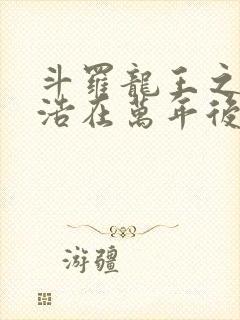 斗羅龍王之
浩在萬年後
游疆